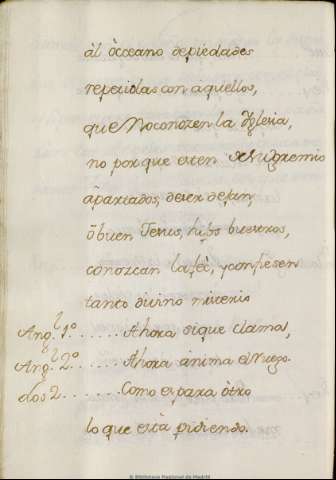 àl òcceano de piedades
repetidas con aquellos,
que No conozen la Yglesia,
no por que esten de su gremio
apartados, dexen de ser,
ò buen Jesus, hijos buestros,
conozcan la feè, y confiesen
tanto divino misterio
Ang.l 1.º ...... Ahora si que clama,
Ang.l 2.º ...... Ahora anima el ruego.
Los 2 ....... Como es para òtro
lo que està pidiendo.
© Biblioteca Nacional de Madrid